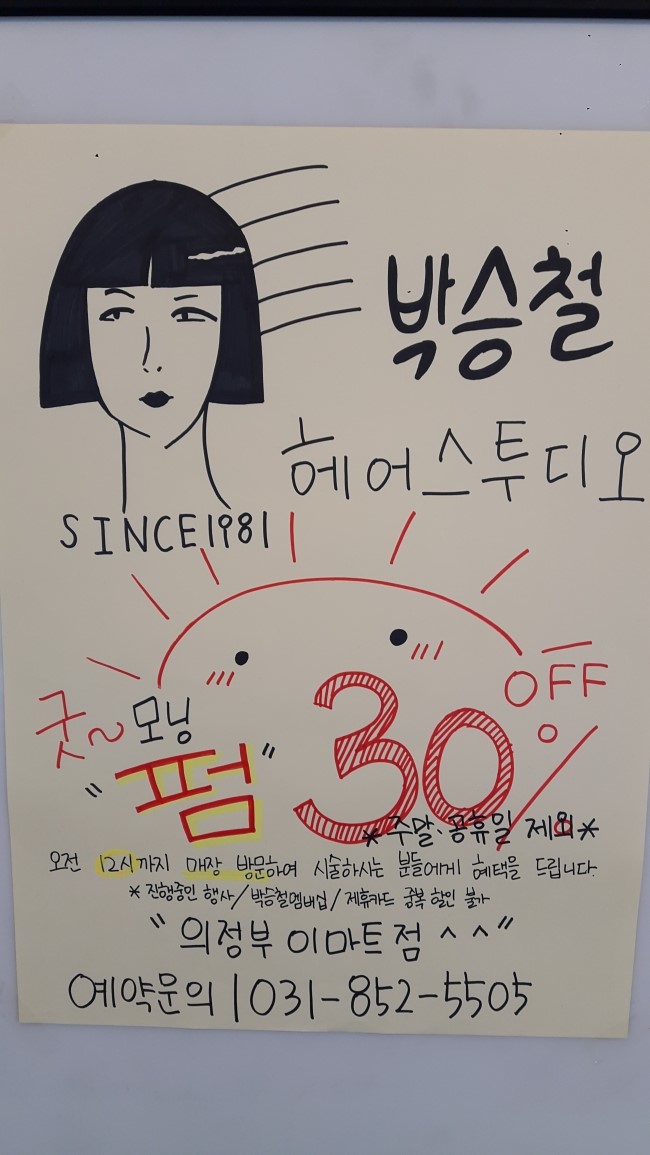 박승철
헤어스투디오
SINCE1981
굿~모닝
"펌"
30% OFF
*주말、공휴일 제외*
오전 12시까지 매장 방문하여 시술하시는 분들에게 혜택을 드립니다.
*진행중인 행사/박승철멤버십/제휴카드 중복 할인 불가
"의정부 이마트점 ^^"
예약문의 | 031-852-5505